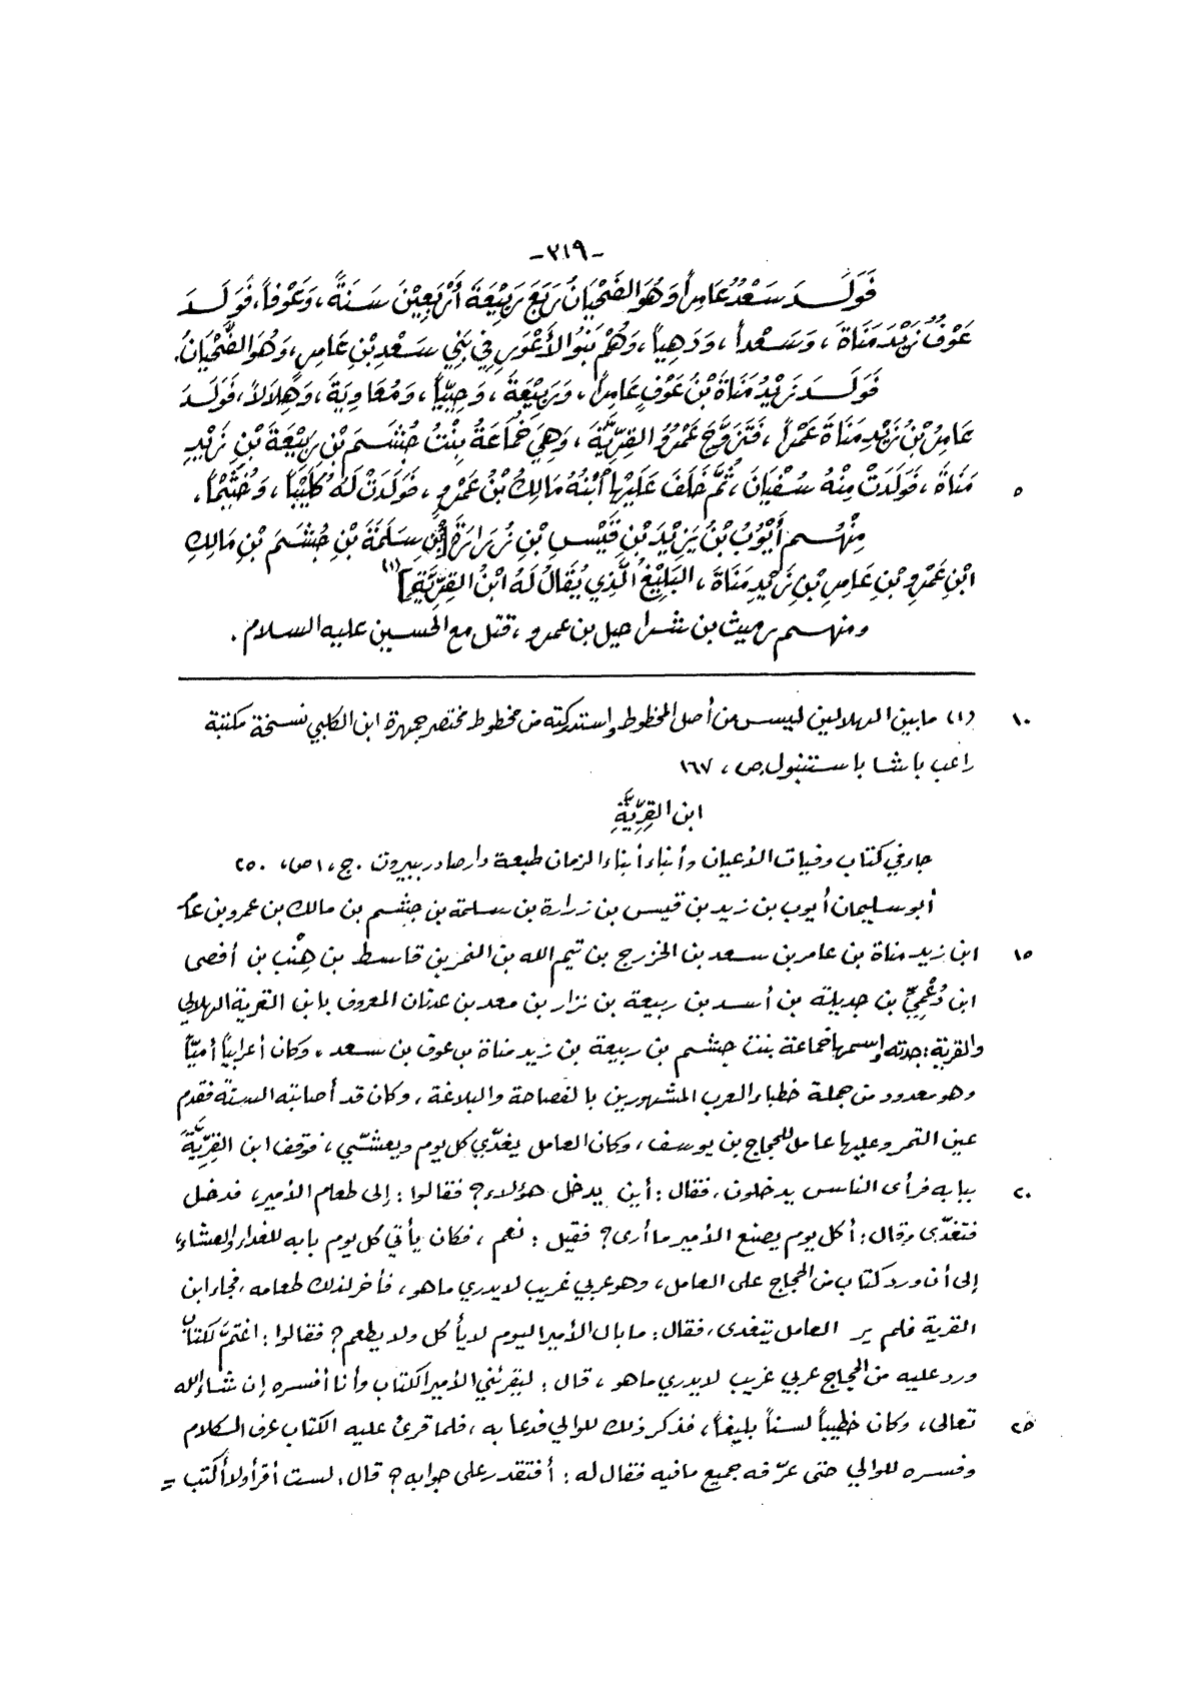 -٣١٩-
فَوَلَدَ سَعْدٌ عَامِراً وَهُوَ الضَّحْيَانُ رَبَعَ رَبِيْعَةَ أَرْبَعِيْنَ سَنَةً، وَعَوْفاً، فَوَلَدَ
عَوْفٌ زَيْدَ مَنَاةَ، وَسَعْداً، وَدَهِيّاً، وَهُمْ بَنُو الأَعْوَرِ فِي بَنِي سَعْدِ بْنِ عَامِرٍ، وَهُوَ الضَّحْيَانُ.
فَوَلَدَ زَيْدُ مَنَاةَ بْنُ عَوْفٍ عَامِراً، وَرَبِيْعَةَ، وَحِيِيّاً، وَمُعَاوِيَةَ، وَهِلَالاً، فَوَلَدَ
عَامِرُ بْنُ زَيْدِ مَنَاةَ عَمْراً، فَتَزَوَّجَ عَمْرٌو القِرِّيَّةَ، وَهِيَ خُمَاعَةُ بِنْتُ جُشَمَ بْنِ رَبِيْعَةَ بْنِ زَيْدِ
مَنَاةَ، فَوَلَدَتْ مِنْهُ سُفْيَانَ، ثُمَّ خَلَفَ عَلَيْهَا ابْنُهُ مَالِكُ بْنُ عَمْرٍو، فَوَلَدَتْ لَهُ كُلَيْباً، وَجُشَماً، ٥
مِنْهُم أَيُّوبُ بْنُ يَزِيْدَ بْنِ قَيْسِ بْنِ زُرَارَةَ [بْنِ سَلَمَةَ بْنِ جُشَمَ بْنِ مَالِكِ
ابْنِ عَمْرِو بْنِ عَامِرِ بْنِ زَيْدِ مَنَاةَ، البَلِيْغُ الَّذِي يُقَالُ لَهُ ابْنُ القِرِّيَّةِ](١)
ومنهم رميث بن شراحيل بن عمرو، قتل مع الحسين عليه السلام.
(١) مابين الهلالين ليس من أصل المخطوط واستدركته من مخطوط مختصر جمهرة ابن الكلبي نسخة مكتبة ١٠
راغب باشا باستنبول ص، ١٦٧
ابن القِرِّيَّةِ
جاء في كتاب وفيات الأعيان وأنباء أبناء الزمان طبعة دار صادر ببيروت. ج، ١ ص، ٢٥٠
أبو سليمان أيوب بن زيد بن قيس بن زرارة بن سلمة بن جشم بن مالك بن عمرو بن عامر
ابن زيد مناة بن عامر بن سعد بن الخزرج بن تيم الله بن النمر بن قاسط بن هِنْب بن أفصى ١٥
ابن دُعْمِيّ بن جديلة بن أسد بن ربيعة بن نزار بن معد بن عدنان المعروف بابن القرية الهلالي
والقرية: جدته واسمها خماعة بنت جشم بن ربيعة بن زيد مناة بن عوف بن سعد، وكان أعرابياً أميّاً
وهو معدود من جملة خطباء العرب المشهورين بالفصاحة والبلاغة، وكان قد أصابته السنة فقدم
عين التمر وعليها عامل للحجاج بن يوسف، وكان العامل يغدّي كل يوم ويعشّي، فوقف ابن القِرِّيَّةِ
ببابه فرأى الناس يدخلون، فقال: أين يدخل هؤلاء؟ فقالوا: إلى طعام الأمير، فدخل ٢٠
فتغدّى وقال: أكل يوم يصنع الأمير ما أرى؟ فقيل: نعم، فكان يأتي كل يوم بابه للغداء والعشاء،
إلى أن ورد كتاب من الحجاج على العامل، وهو عربي غريب لايدري ماهو، فأخر لذلك طعامه، فجاء ابن
القرية فلم ير العامل يتغدى، فقال: ما بال الأمير اليوم لا يأكل ولا يطعم؟ فقالوا: اغتمّ لكتاب
ورد عليه من الحجاج عربي غريب لايدري ماهو، قال: ليقرئني الأمير الكتاب وأنا أفسره إن شاء الله
تعالى، وكان خطيباً لسناً بليغاً، فذكر ذلك للوالي فدعا به، فلما قرئ عليه الكتاب عرف الكلام ٢٥
وفسره للوالي حتى عرّفه جميع ما فيه فقال له: أفتقدر على جوابه؟ قال: لست أقرأ ولا أكتب =